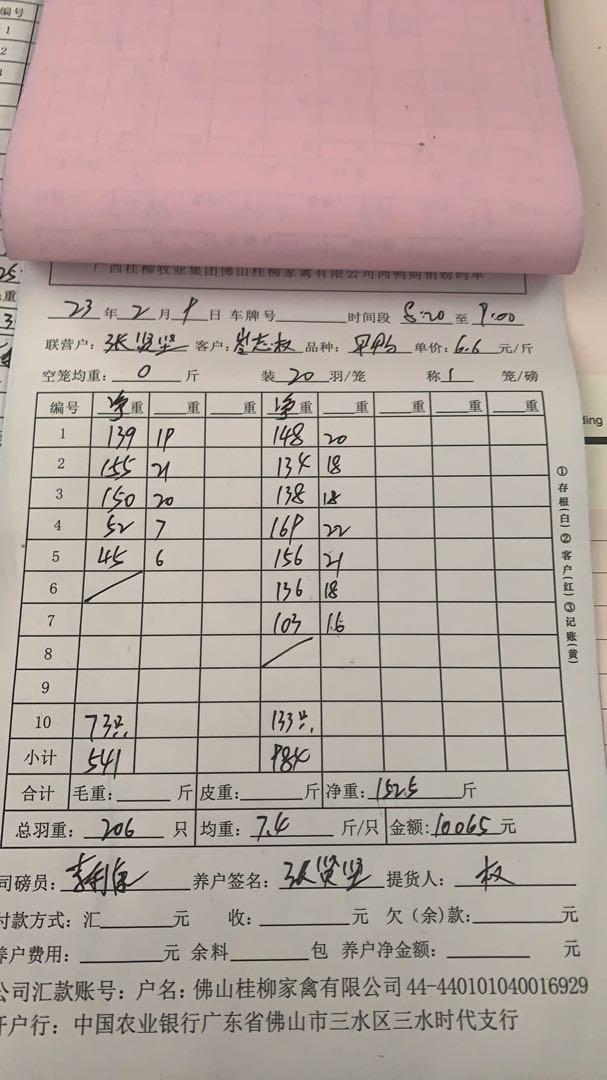 编号
1
2
广西桂柳牧业集团佛山桂柳家禽有限公司肉鸭购销磅码单
23 年 2 月 9 日 车牌号 时间段 8:20 至 9:00
联营户: 张贤坚 客户: 岑志权 品种: 单价: 6.6 元/斤
空笼均重: 0 斤 装 20 羽/笼 称 1 笼/磅
编号 净重 重 重 净重 重 重 重 重
1 139 19 148 20
2 155 21 134 18
3 150 20 138 18
4 52 7 169 22
5 45 6 156 21
6 136 18
7 103 16
8
9
10 73只 133只
小计 541 984
合计 毛重: 斤 皮重: 斤 净重: 1525 斤
总羽重: 206 只 均重: 7.4 斤/只 金额: 10065 元
司磅员: 养户签名: 张贤坚 提货人: 权
付款方式: 汇 元 收: 元 欠(余)款: 元
养户费用: 元 余料 包 养户净金额: 元
公司汇款账号: 户名: 佛山桂柳家禽有限公司 44-440101040016929
开户行: 中国农业银行广东省佛山市三水区三水时代支行
①存根(白)②客户(红)③记账(黄)
ding